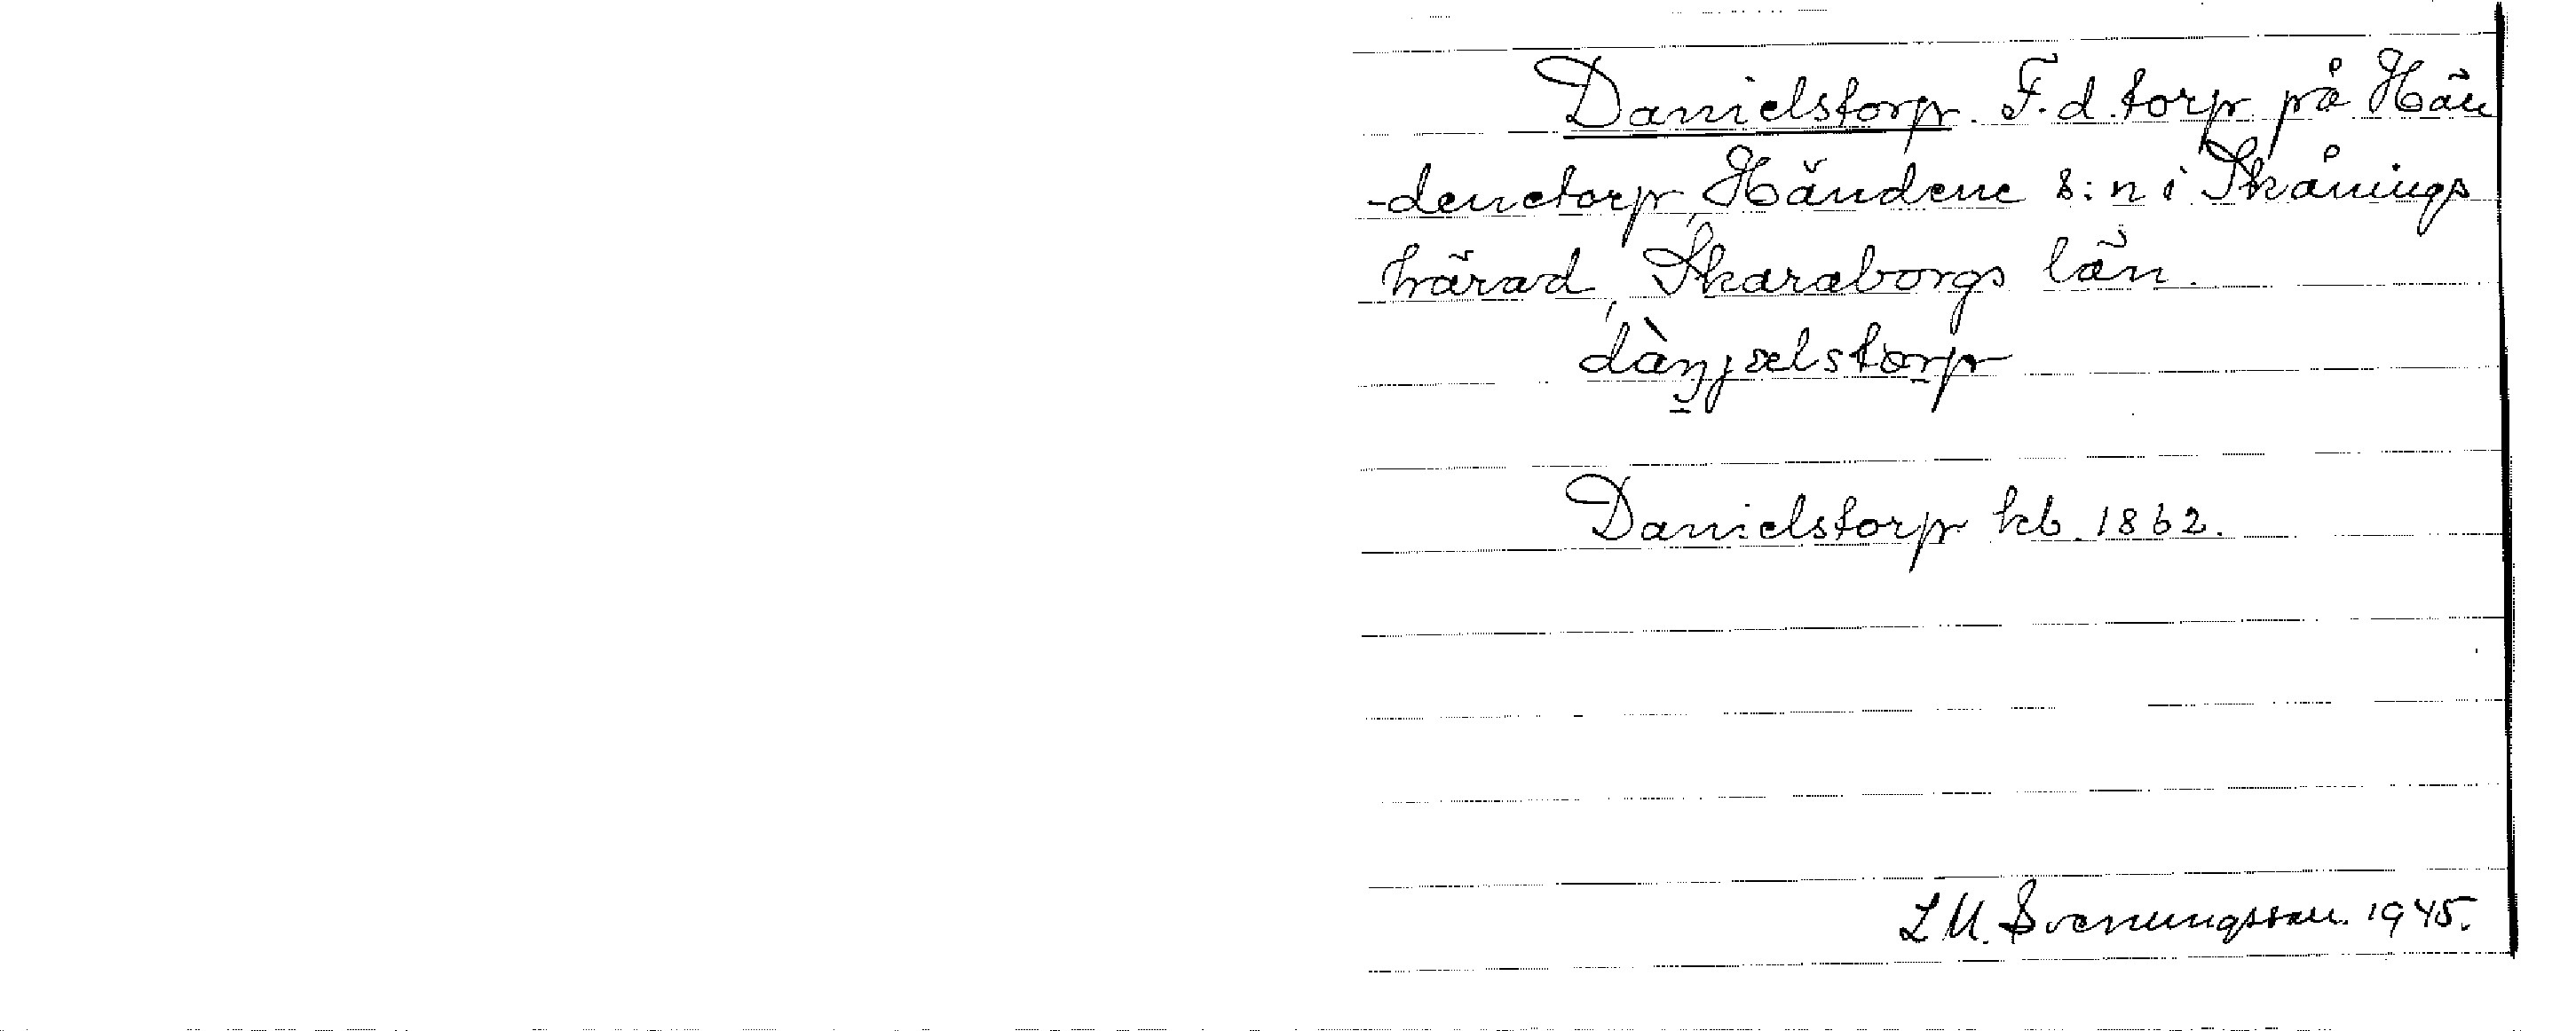 Danielstorp. F.d. torp på Hän
-denetorp, Händene s:n i Skånings
härad, Skaraborgs län.
Danielstorp kb. 1862.
L M. Svenungsson. 1945.